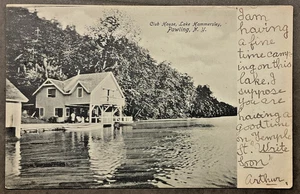 Club House, Lake Hammersley,
Pawling, N. Y.
I am
having
a fine
time
camp
ing on
this
lake. I
suppose
you are
having a
good time
on Temple
St. Write
Soon
Arthur.